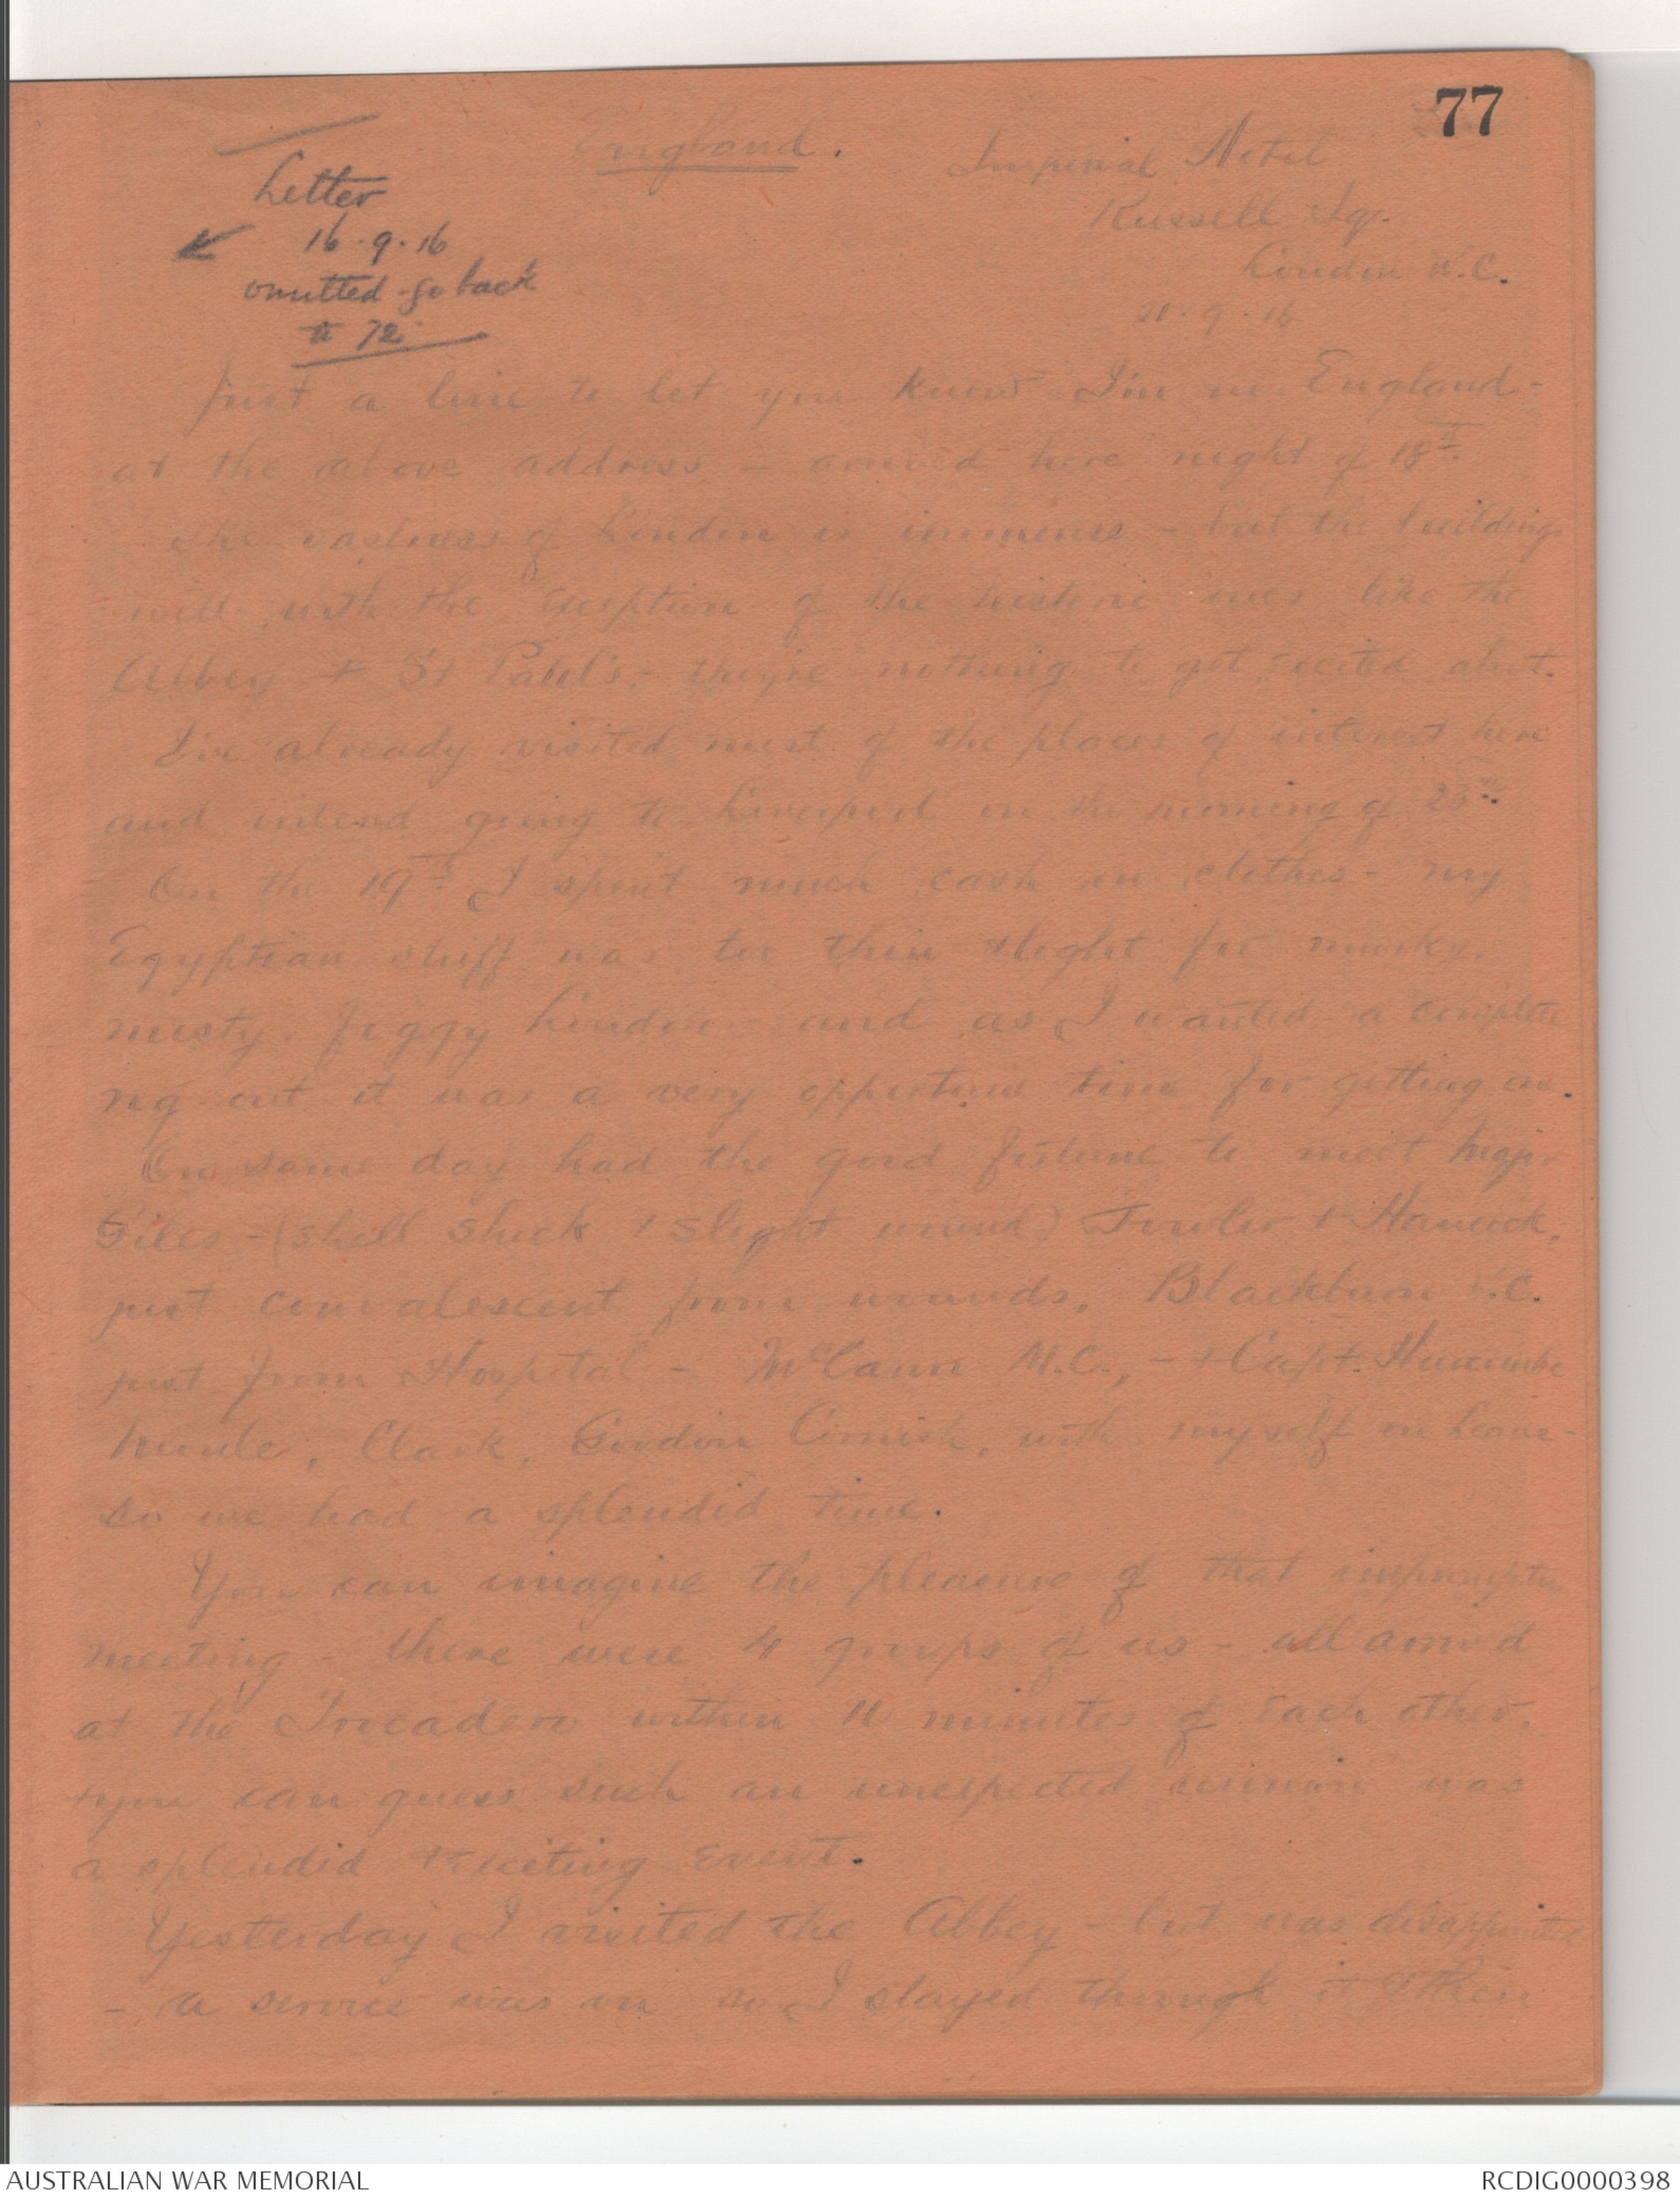 77
England.
Imperial Hotel
Russell Sq.
London W.C.
20.9.16
Letter
16.9.16
omitted - go back
to 72
Just a line to let you know I'm in England -
at the above address - arrived here night of 18th.
The vastness of London is immense - but the buildings
well, with the exception of the historic ones like the
Abbey + St Paul's, - they're nothing to get excited abt.
I've already visited most of the places of interest here
and intend going to Liverpool on the morning of 23rd.
On the 19th I spent much cash on clothes - my
Egyptian stuff was too thin & light for murky,
misty, foggy London - and as I wanted a complete
rig-out it was a very opportune time for getting one.
On same day had the good fortune to meet Major
Giles - (shell shock + slight wound) Fowler + Hancock,
just convalescent from wounds, Blackburn V.C.
just from Hospital - McCann M.C., - + Capt.
Mule, Clark, Gordon Cornish, with myself on leave -
so we had a splendid time.
You can imagine the pleasure of that impromptu
meeting - there were 4 groups of us - all arrived
at the Trocadero within 10 minutes of each other,
+ you can guess such an unexpected reunion was
a splendid + exciting event.
Yesterday I visited the Abbey - but was disappointed
- a service was on so I stayed through it & then
AUSTRALIAN WAR MEMORIAL
RCDIG0000398